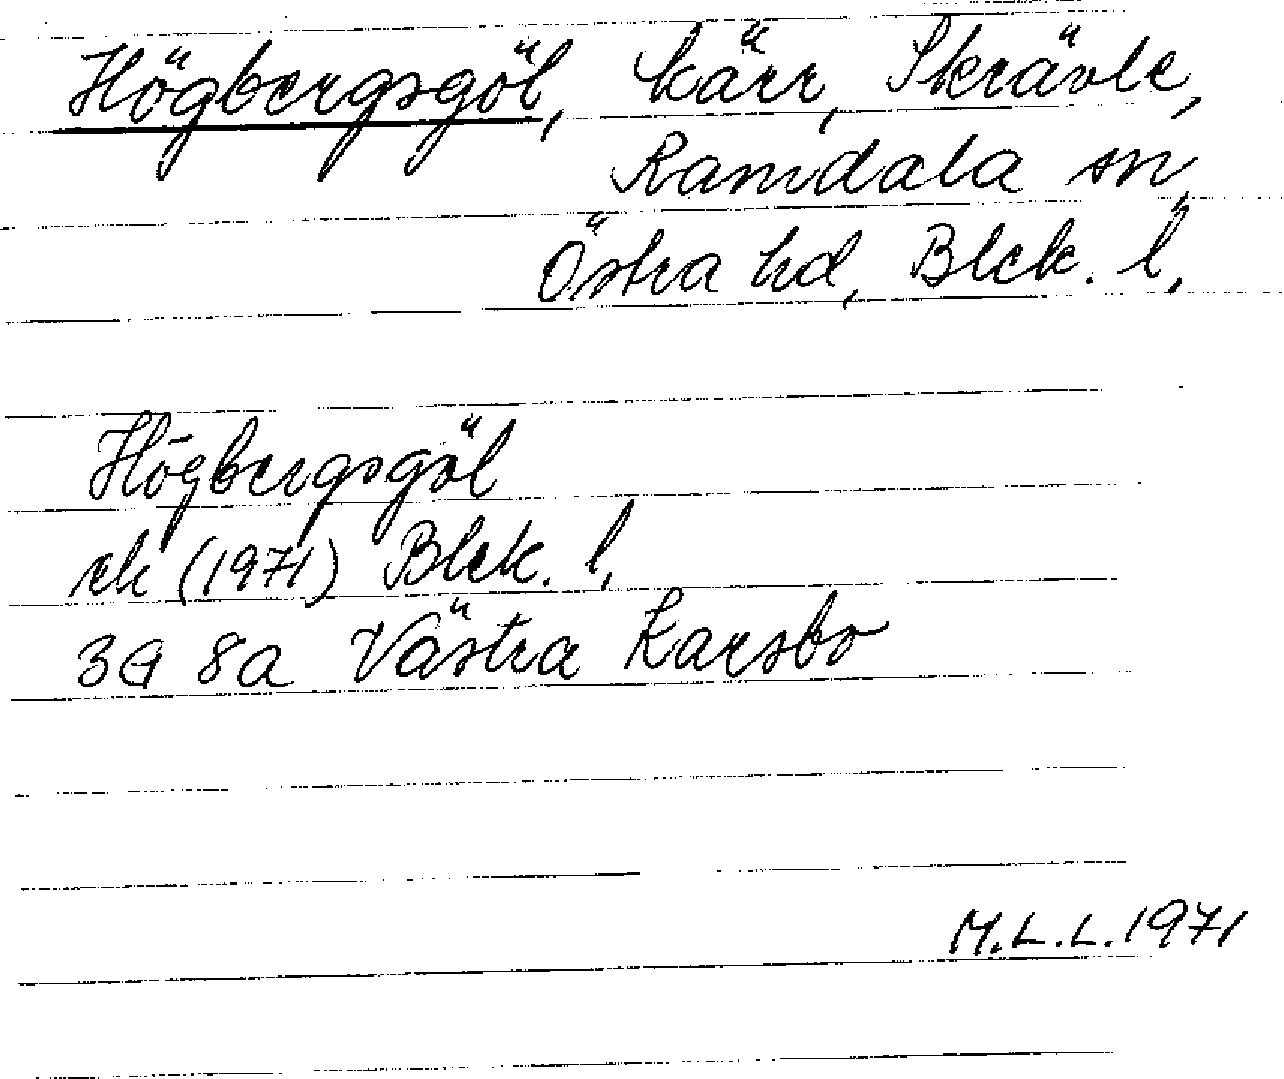 Högbergsgöl, kärr, Skrävle,
Ramdala sn,
Östra hd, Blek. l.
Högbergsgöl
ek (1971) Blek. l.
3G 8a Västra Karsbo
M.L.L. 1971